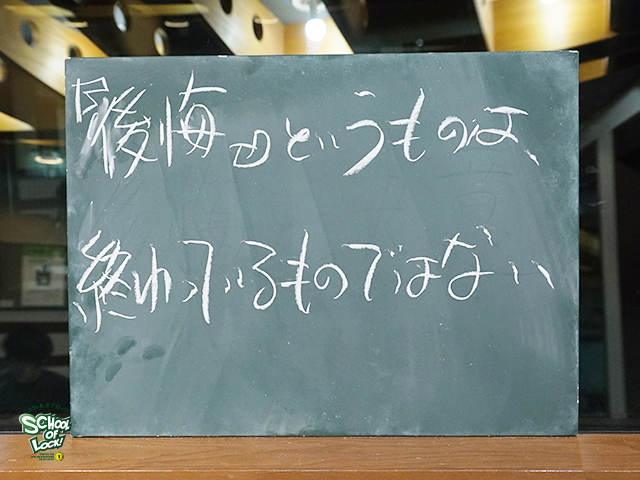 『後悔』というものは、
終わっているものではない
SCHOOL
OF
LOCK!